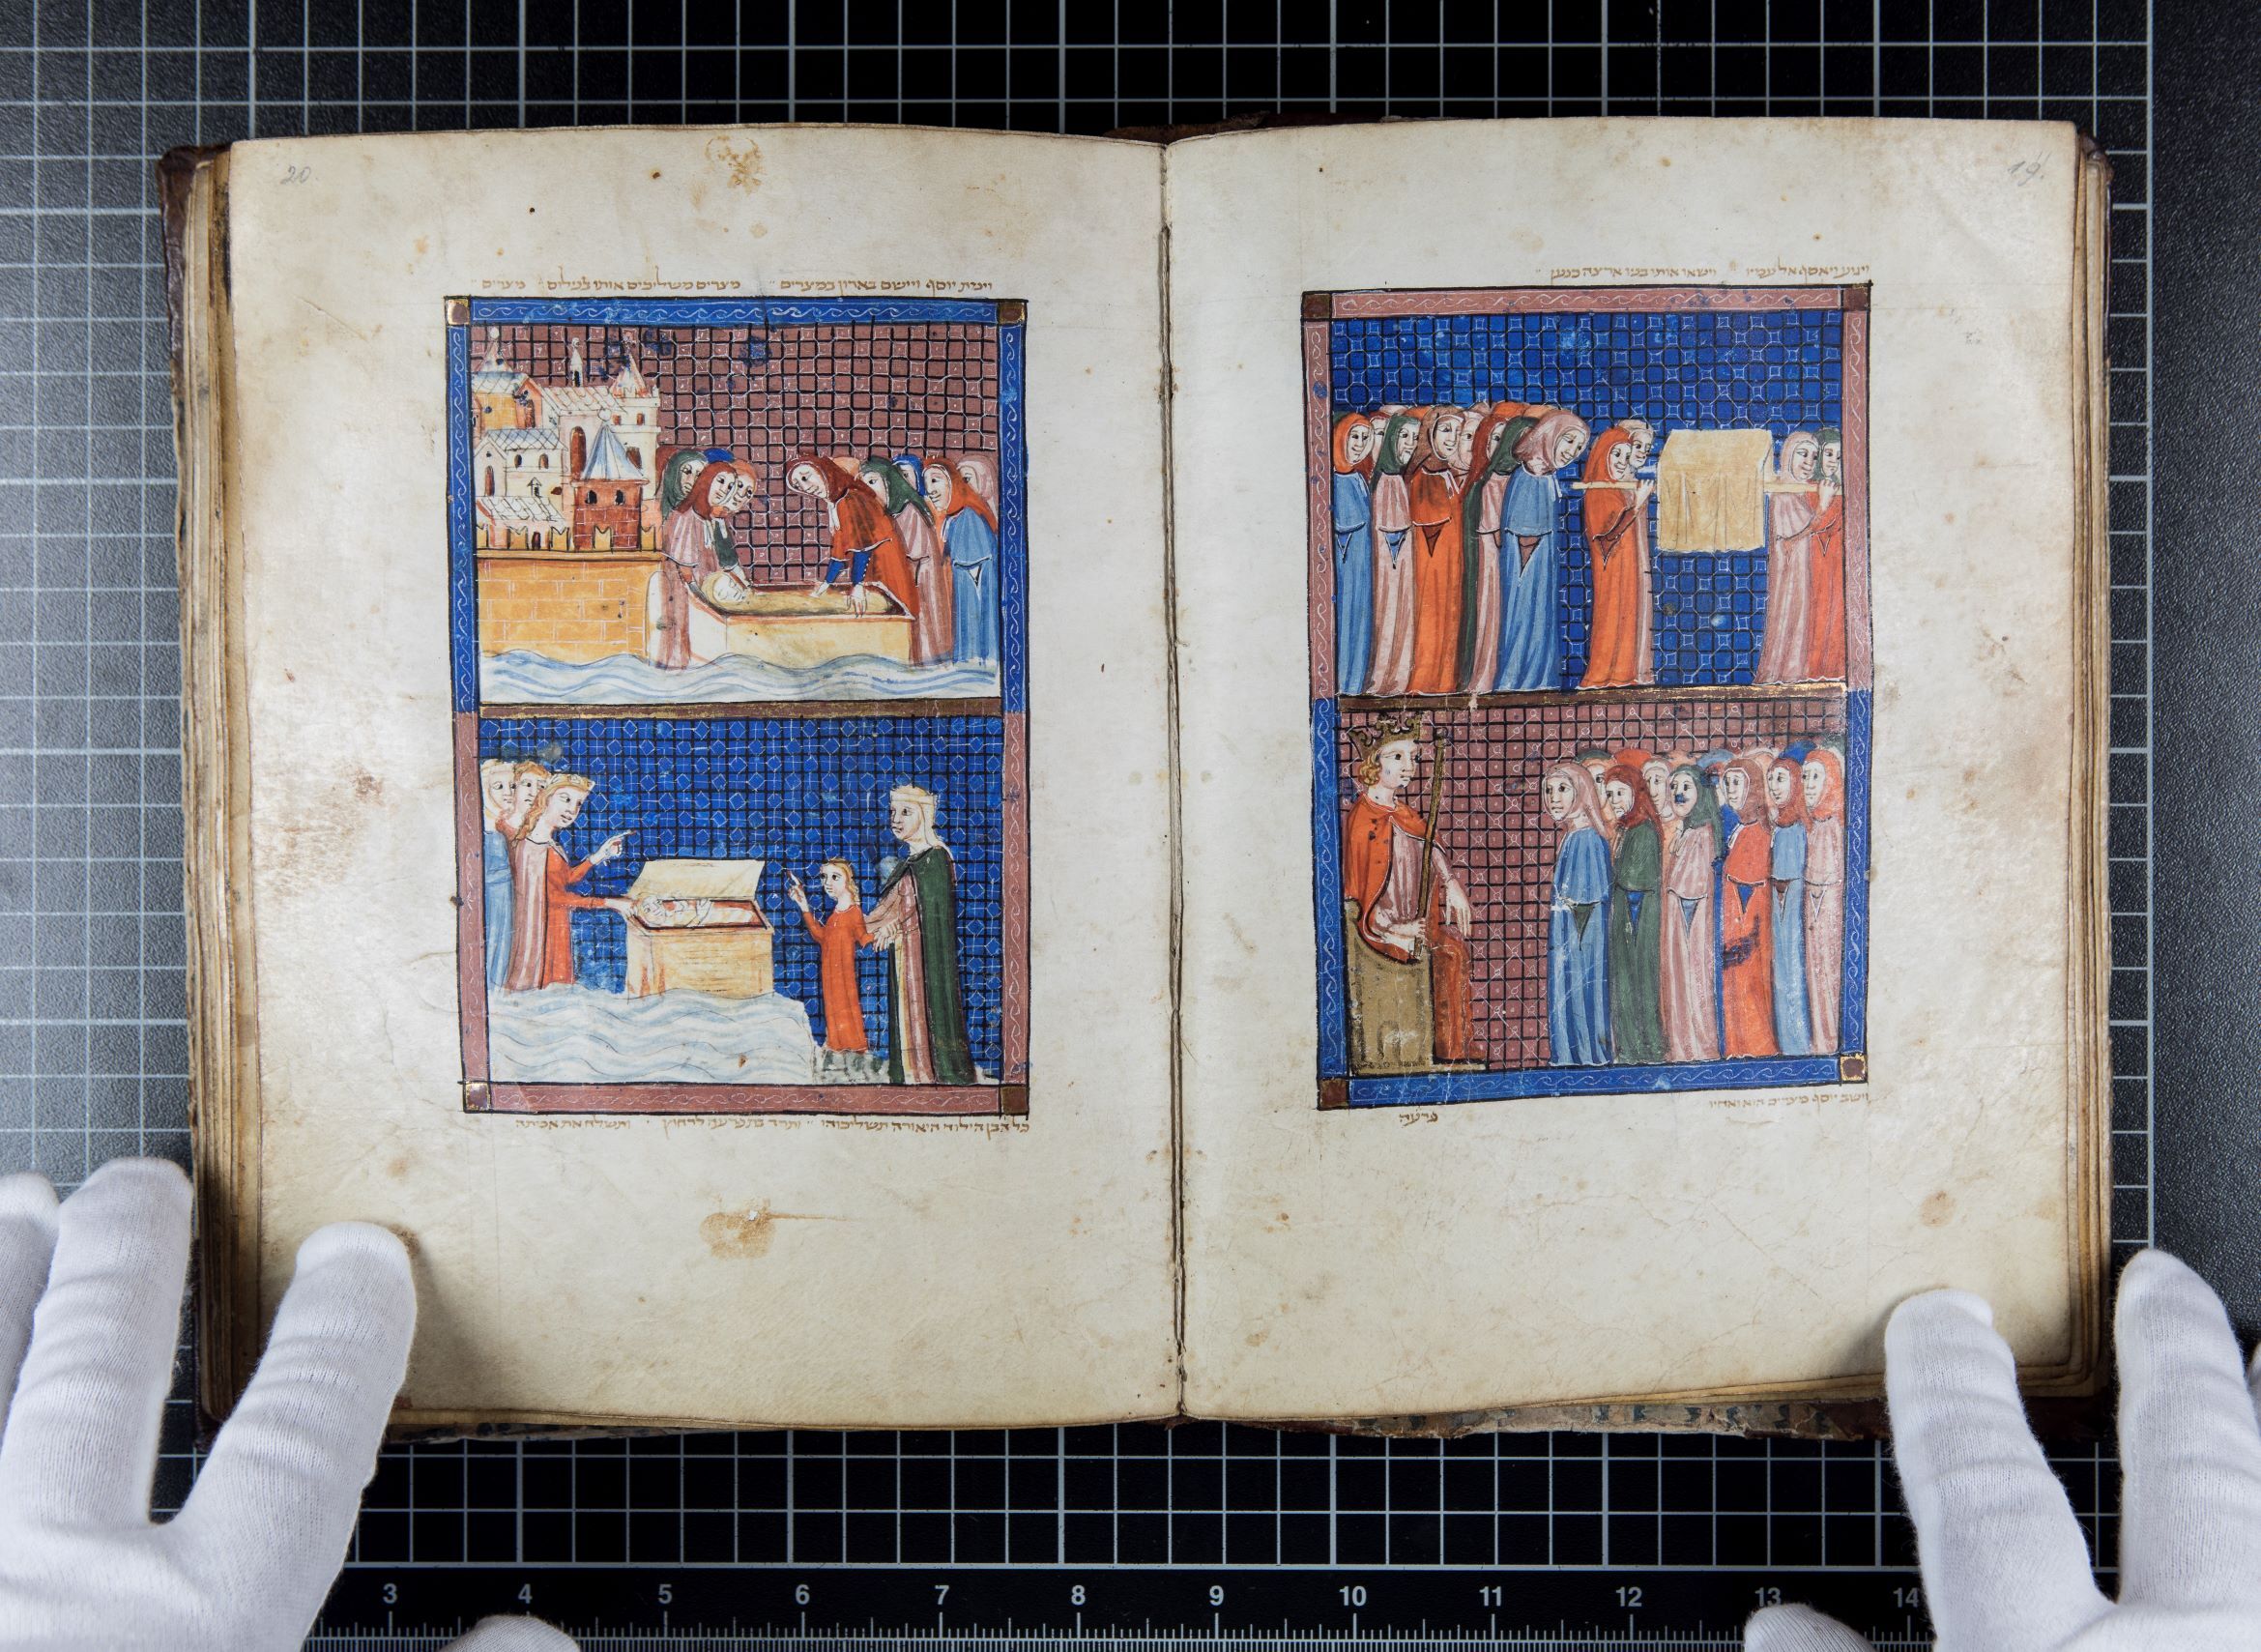 19.
ויגוע ויאסף אל עמיו וישאו אותו בניו ארצה כנען
וישב יוסף מצרים הוא ואחיו
פרעה
20.
וימת יוסף ויישם בארון במצרים מצרים משליכים אותו בנילוס מצרים
כל הבן הילוד היאורה תשליכוהו ותרד בת פרעה לרחוץ ותשלח את אמתה
3 4 5 6 7 8 9 10 11 12 13 14